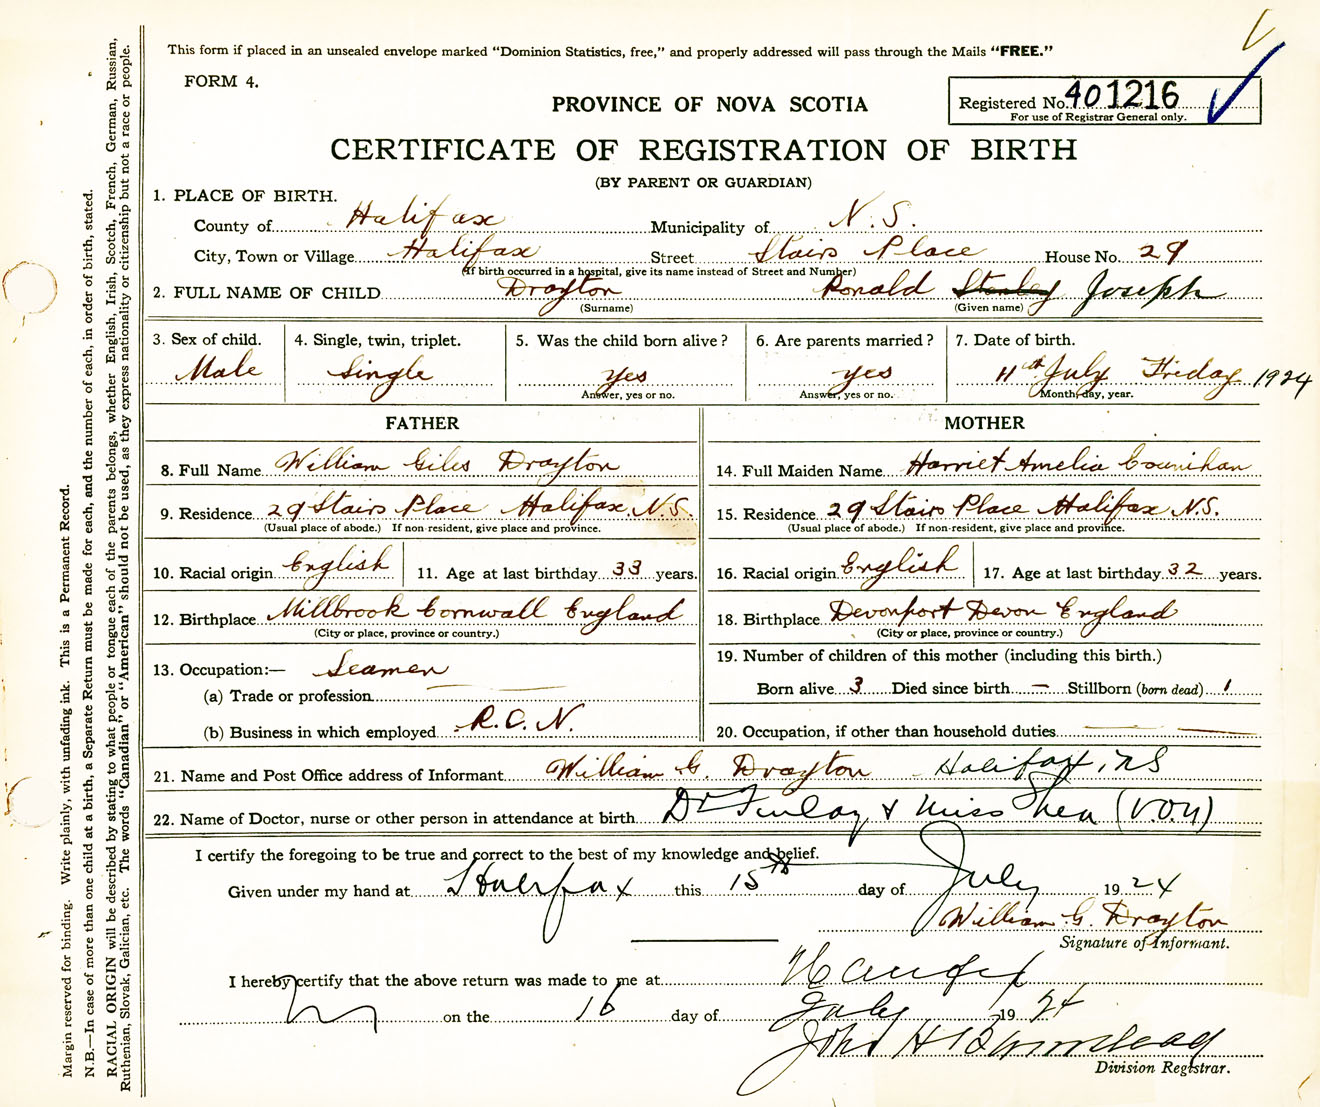 This form if placed in an unsealed envelope marked "Dominion Statistics, free," and properly addressed will pass through the Mails "FREE."
FORM 4.
PROVINCE OF NOVA SCOTIA
Registered No. 401216
For use of Registrar General only.
CERTIFICATE OF REGISTRATION OF BIRTH
(BY PARENT OR GUARDIAN)
1. PLACE OF BIRTH.
County of Halifax Municipality of N.S.
City, Town or Village Halifax Street Stairs Place House No. 29
(If birth occurred in a hospital, give its name instead of Street and Number)
2. FULL NAME OF CHILD Drayton Ronald Stanley Joseph
(Surname) (Given name)
3. Sex of child. 4. Single, twin, triplet. 5. Was the child born alive? 6. Are parents married? 7. Date of birth.
Male Single yes yes 11th July Friday 1924
Answer, yes or no. Answer, yes or no. Month, day, year.
FATHER MOTHER
8. Full Name William Giles Drayton 14. Full Maiden Name Harriet Amelia Counihan
9. Residence 29 Stairs Place Halifax N.S. 15. Residence 29 Stairs Place Halifax N.S.
(Usual place of abode.) If non-resident, give place and province. (Usual place of abode.) If non-resident, give place and province.
10. Racial origin English 11. Age at last birthday 33 years. 16. Racial origin English 17. Age at last birthday 32 years.
12. Birthplace Millbrook Cornwall England 18. Birthplace Devonport Devon England
(City or place, province or country.) (City or place, province or country.)
13. Occupation:— Seamen 19. Number of children of this mother (including this birth.)
(a) Trade or profession Born alive 3 Died since birth — Stillborn (born dead) 1
(b) Business in which employed R.C.N. 20. Occupation, if other than household duties
21. Name and Post Office address of Informant William G. Drayton Halifax, NS
22. Name of Doctor, nurse or other person in attendance at birth Dr Finlay & Miss Shea (V.O.N)
I certify the foregoing to be true and correct to the best of my knowledge and belief.
Given under my hand at Halifax this 15th day of July 1924
William G. Drayton
Signature of Informant.
I hereby certify that the above return was made to me at Halifax
on the 16 day of July 1924
John H
Division Registrar.
Margin reserved for binding. Write plainly, with unfading ink. This is a Permanent Record.
N.B.—In case of more than one child at a birth, a Separate Return must be made for each, and the number of each, in order of birth, stated.
RACIAL ORIGIN will be described by stating to what people or tongue each of the parents belongs, whether English, Irish, Scotch, French, German, Russian,
Ruthenian, Slovak, Galician, etc. The words "Canadian" or "American" should not be used, as they express nationality or citizenship but not a race or people.